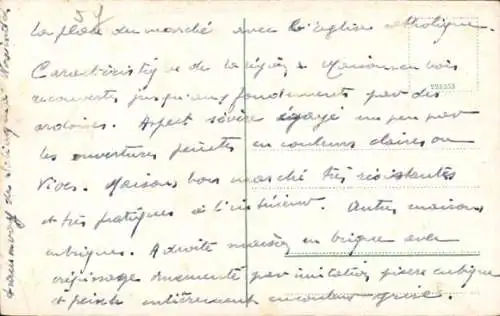 La place du marché avec l'église catholique.
Caractéristique de la région. Maisons en bois
recouvertes jusqu'aux fondements par des
ardoises. Aspect sévère égayé un peu par
les ouvertures peintes en couleurs claires ou
vives. Maisons bon marché très résistantes
et très pratiques à l'intérieur. Autres maisons
en briques. A droite maison en brique avec
crépissage ornementé par imitation pierre
et peinte entièrement en couleur grise.
221353